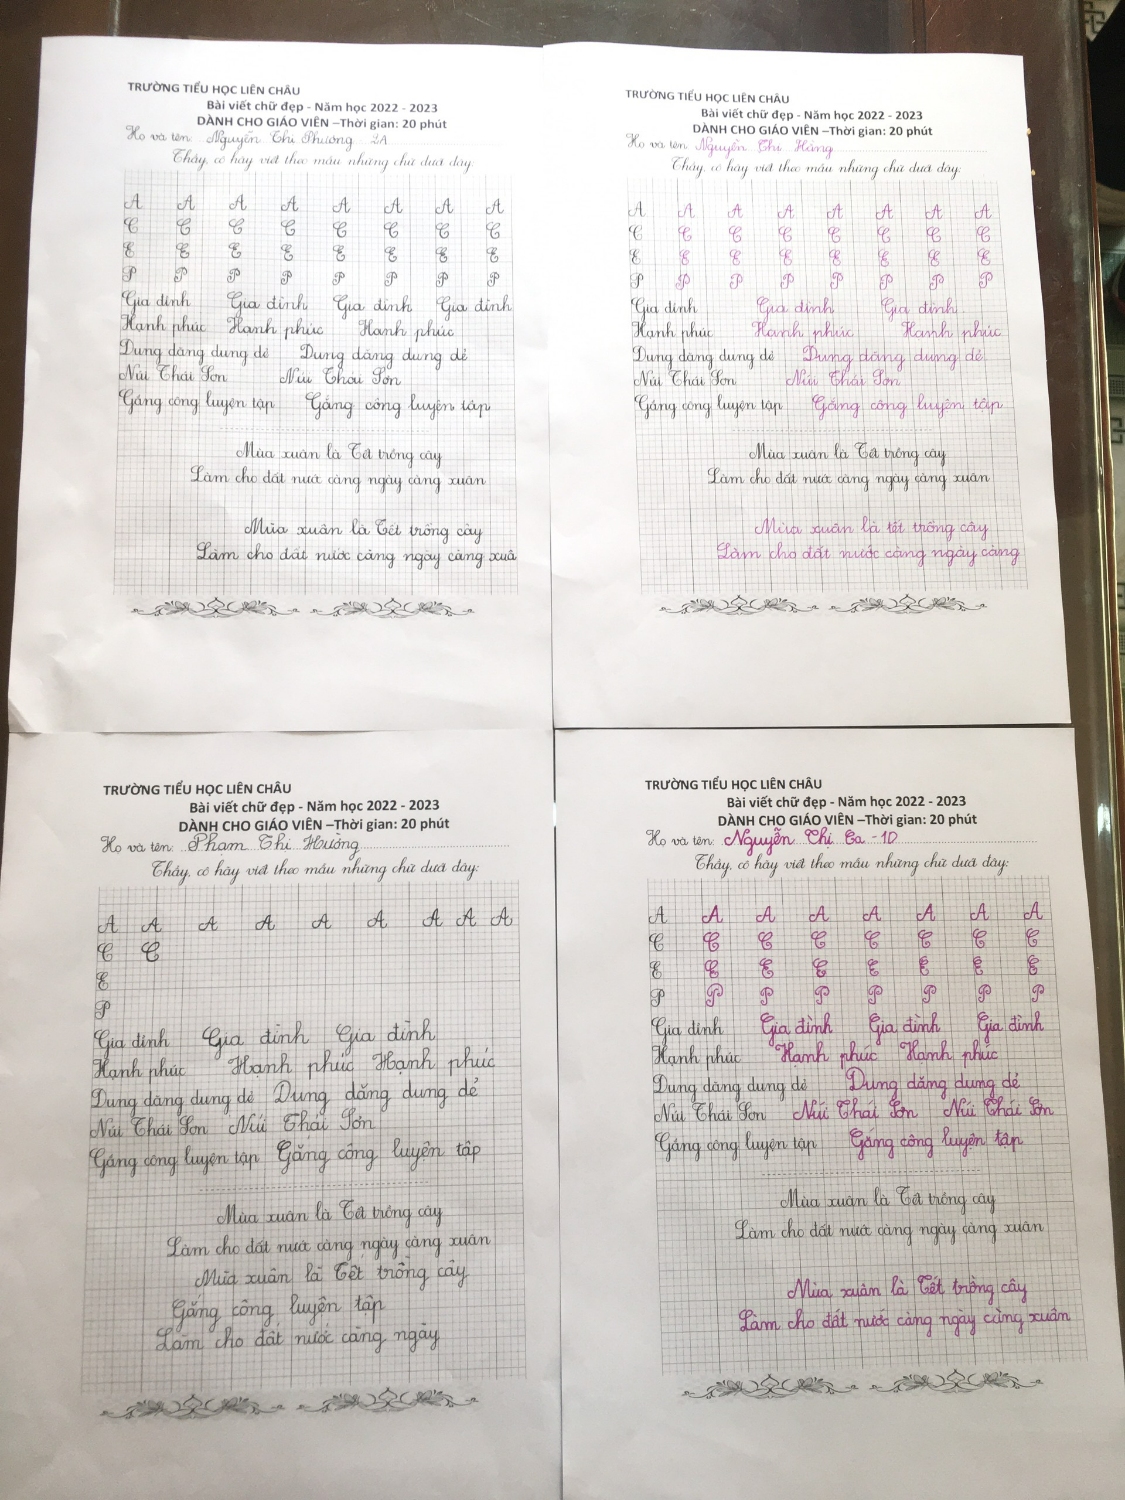 TRƯỜNG TIỂU HỌC LIÊN CHÂU
Bài viết chữ đẹp - Năm học 2022 - 2023
DÀNH CHO GIÁO VIÊN –Thời gian: 20 phút
Họ và tên: Nguyễn Thị Phương 2A
Thầy, cô hãy viết theo mẫu những chữ dưới đây:
A A A A A A A A
C C C C C C C C
E E E E E E E E
P P P P P P P P
Gia đình Gia đình Gia đình Gia đình
Hạnh phúc Hạnh phúc Hạnh phúc
Dung dăng dung dẻ Dung dăng dung dẻ
Núi Thái Sơn Núi Thái Sơn
Gắng công luyện tập Gắng công luyện tập
Mùa xuân là Tết trồng cây
Làm cho đất nước càng ngày càng xuân
Mùa xuân là Tết trồng cây
Làm cho đất nước càng ngày càng xuâ
TRƯỜNG TIỂU HỌC LIÊN CHÂU
Bài viết chữ đẹp - Năm học 2022 - 2023
DÀNH CHO GIÁO VIÊN –Thời gian: 20 phút
Họ và tên: Nguyễn Thị Hằng
Thầy, cô hãy viết theo mẫu những chữ dưới đây:
A A A A A A A A
C C C C C C C C
E E E E E E E E
P P P P P P P P
Gia đình Gia đình Gia đình
Hạnh phúc Hạnh phúc Hạnh phúc
Dung dăng dung dẻ Dung dăng dung dẻ
Núi Thái Sơn Núi Thái Sơn
Gắng công luyện tập Gắng công luyện tập
Mùa xuân là Tết trồng cây
Làm cho đất nước càng ngày càng xuân
Mùa xuân là tết trồng cây
Làm cho đất nước càng ngày càng
TRƯỜNG TIỂU HỌC LIÊN CHÂU
Bài viết chữ đẹp - Năm học 2022 - 2023
DÀNH CHO GIÁO VIÊN –Thời gian: 20 phút
Họ và tên: Phạm Thị Hường
Thầy, cô hãy viết theo mẫu những chữ dưới đây:
A A A A A A A A A
C C
E
P
Gia đình Gia đình Gia đình
Hạnh phúc Hạnh phúc Hạnh phúc
Dung dăng dung dẻ Dung dăng dung dẻ
Núi Thái Sơn Núi Thái Sơn
Gắng công luyện tập Gắng công luyện tập
Mùa xuân là Tết trồng cây
Làm cho đất nước càng ngày càng xuân
Mùa xuân là Tết trồng cây
Gắng công luyện tập
Làm cho đất nước càng ngày
TRƯỜNG TIỂU HỌC LIÊN CHÂU
Bài viết chữ đẹp - Năm học 2022 - 2023
DÀNH CHO GIÁO VIÊN –Thời gian: 20 phút
Họ và tên: Nguyễn Thị Ca - 1D
Thầy, cô hãy viết theo mẫu những chữ dưới đây:
A A A A A A A A
C C C C C C C C
E E E E E E E E
P P P P P P P P
Gia đình Gia đình Gia đình Gia đình
Hạnh phúc Hạnh phúc Hạnh phúc
Dung dăng dung dẻ Dung dăng dung dẻ
Núi Thái Sơn Núi Thái Sơn Núi Thái Sơn
Gắng công luyện tập Gắng công luyện tập
Mùa xuân là Tết trồng cây
Làm cho đất nước càng ngày càng xuân
Mùa xuân là Tết trồng cây
Làm cho đất nước càng ngày càng xuân